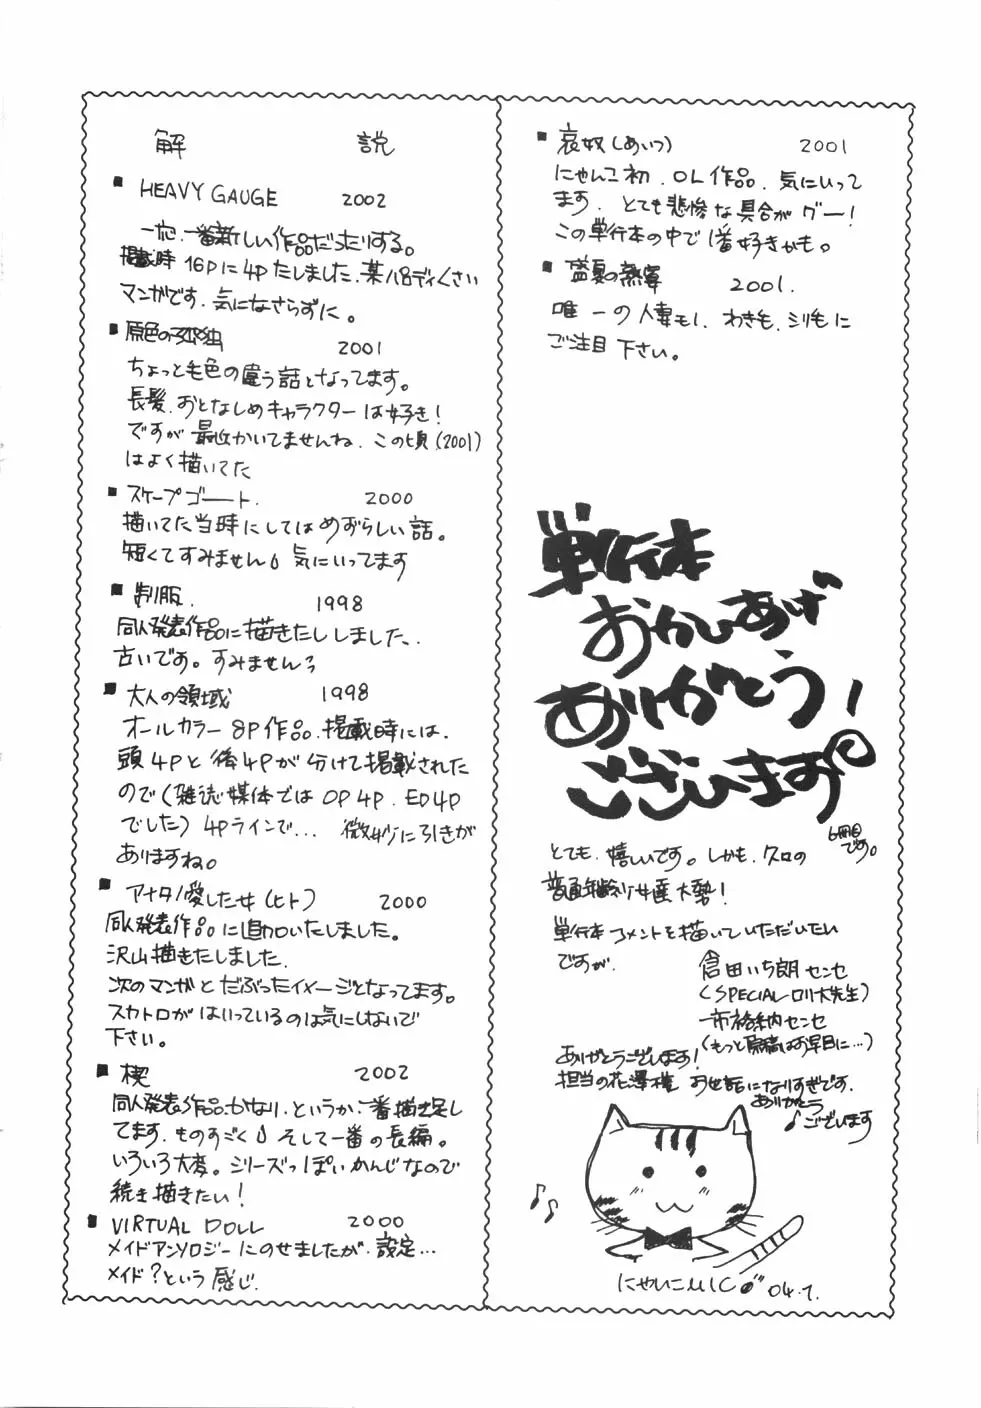 解説
■ HEAVY GAUGE 2002
一応、一番新しい作品だったりする。
掲載時16Pに4Pたしました、某パロディくさい
マンガです、気になさらずに。
■ 原色の孤独 2001
ちょっと毛色の違う話となってます。
長髪、おとなしめキャラクターは好き!
ですが最近かいてませんね、この頃(2001)
はよく描いてた
■ スケープゴート. 2000
描いてた当時にしてはめずらしい話。
短くてすみません 気にいってます
■ 制服. 1998
同人発表作品に描きたししました、
古いです。すみませんっ
■ 大人の領域 1998
オールカラー8P作品、掲載時には、
頭4Pと後4Pが分けて掲載された
ので(雑誌媒体ではOP4P、ED4P
でした)4Pラインで... 微妙に引きが
ありますね。
■ アナタノ愛した女(ヒト) 2000
同人発表作品に追加いたしました。
沢山描きたしました.
次のマンガとだぶったイメージとなってます。
スカトロがはいっているのは気にしないで
下さい。
■ 楔 2002
同人発表作品、かなり、というか、一番描き足し
てます、ものすごく そして一番の長編。
いろいろ大変。シリーズっぽいかんじなので
続き描きたい!
■ VIRTUAL DOLL 2000
メイドアンソロジーにのせましたが、設定...
メイド?という感じ.
■ 哀奴(あいつ) 2001
にゃんこ初、OL作品、気にいって
ます、とても悲惨な具合がグー!
この単行本の中で1番好きかも。
■ 盛夏の熱宴 2001.
唯一の人妻モノ、わきも、シリもに
ご注目下さい。
単行本
おかいあげ
ありがとう!
ございます
6冊目
です。
とても、嬉しいです。しかも、クロの
普通年齢 大勢!
単行本コメントを描いていただいたい
ですが、
倉田いち朗センセ
(SPECIALロリ大先生)
市格納センセ
(もっと原稿はお早目に...)
ありがとうございます!
担当の花澤様、お世話になりすぎです、
ありがとう
♪ございます
にゃんこMIC 04.7.